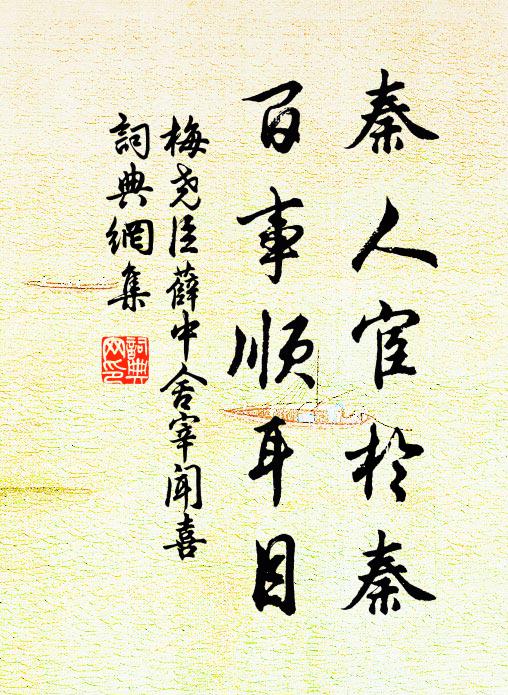 秦人宦於秦
百事順耳目
梅尧臣薛中舍宰闻喜
詞典網集
詞典网印